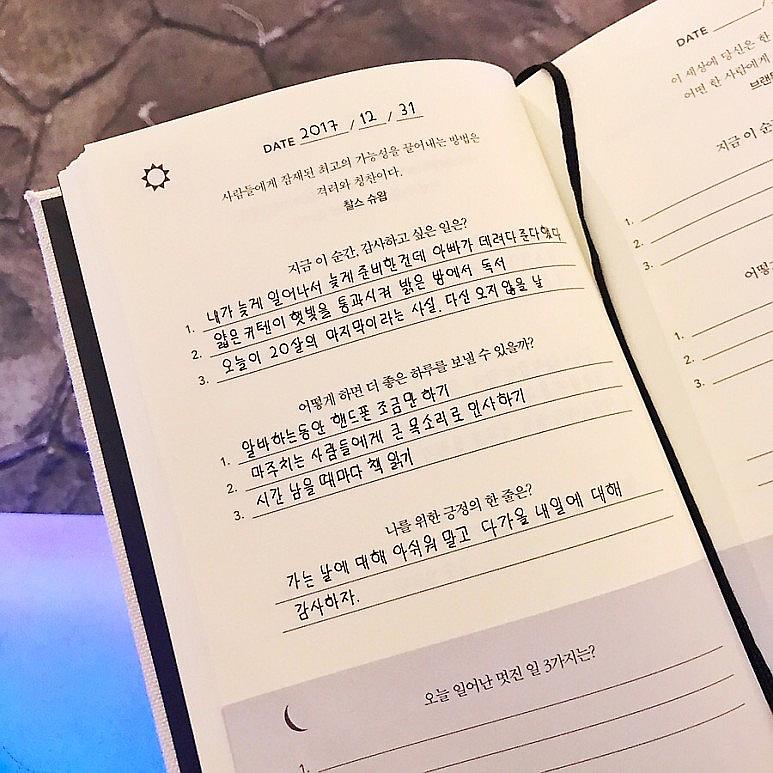 DATE 2017 / 12 / 31
사람들에게 잠재된 최고의 가능성을 끌어내는 방법은
격려와 칭찬이다.
찰스 슈왑
지금 이 순간, 감사하고 싶은 일은?
1. 내가 늦게 일어나서 늦게 준비한건데 아빠가 데려다준다했다
2. 얇은 커텐이 햇빛을 통과시켜 밝은 방에서 독서
3. 오늘이 20살의 마지막이라는 사실. 다신 오지 않을 날
어떻게 하면 더 좋은 하루를 보낼 수 있을까?
1. 알바하는동안 핸드폰 조금만 하기
2. 마주치는 사람들에게 큰 목소리로 인사하기
3. 시간 남을 때마다 책 읽기
나를 위한 긍정의 한 줄은?
가는 날에 대해 아쉬워 말고 다가올 내일에 대해
감사하자.
오늘 일어난 멋진 일 3가지는?
1.
DATE /
이 세상에 당신은 한
어떤 한 사람에게
브랜
지금 이 순
1.
2.
3.
어떻
1.
2.
3.